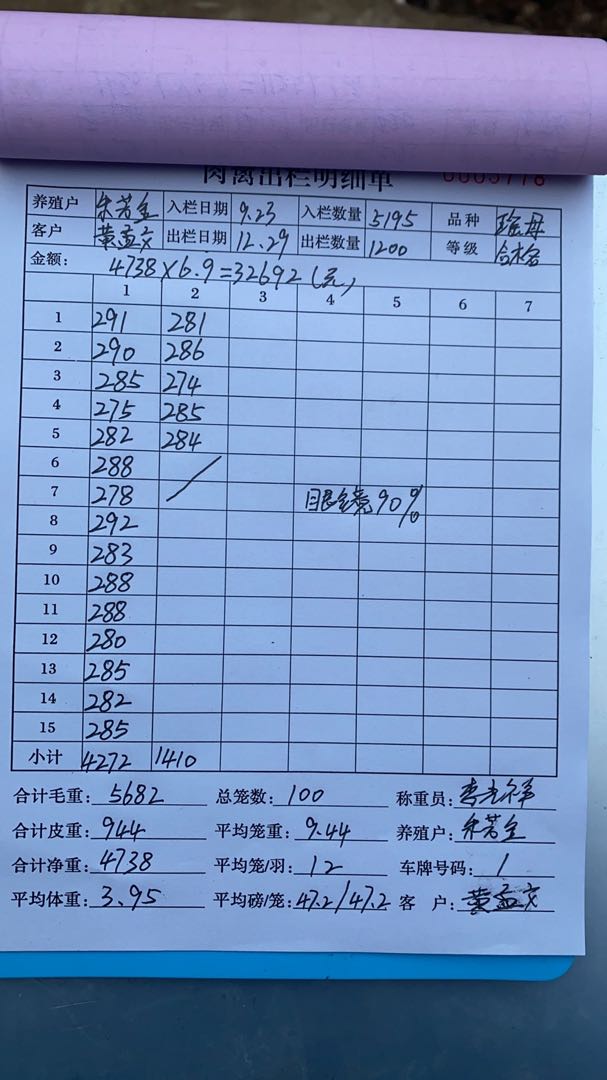 肉禽出栏明细单 0005778
养殖户 朱芳全 入栏日期 9.23 入栏数量 5195 品种 瑶母
客户 黄孟文 出栏日期 12.29 出栏数量 1200 等级 合格
金额: 4738×6.9=32692(元)
1 2 3 4 5 6 7
1 291 281
2 290 286
3 285 274
4 275 285
5 282 284
6 288
7 278 目金竟90%
8 292
9 283
10 288
11 288
12 280
13 285
14 282
15 285
小计 4272 1410
合计毛重: 5682 总笼数: 100 称重员:
合计皮重: 944 平均笼重: 9.44 养殖户: 朱芳全
合计净重: 4738 平均笼/羽: 12 车牌号码: 1
平均体重: 3.95 平均磅/笼: 47.2/47.2 客 户: 黄孟文